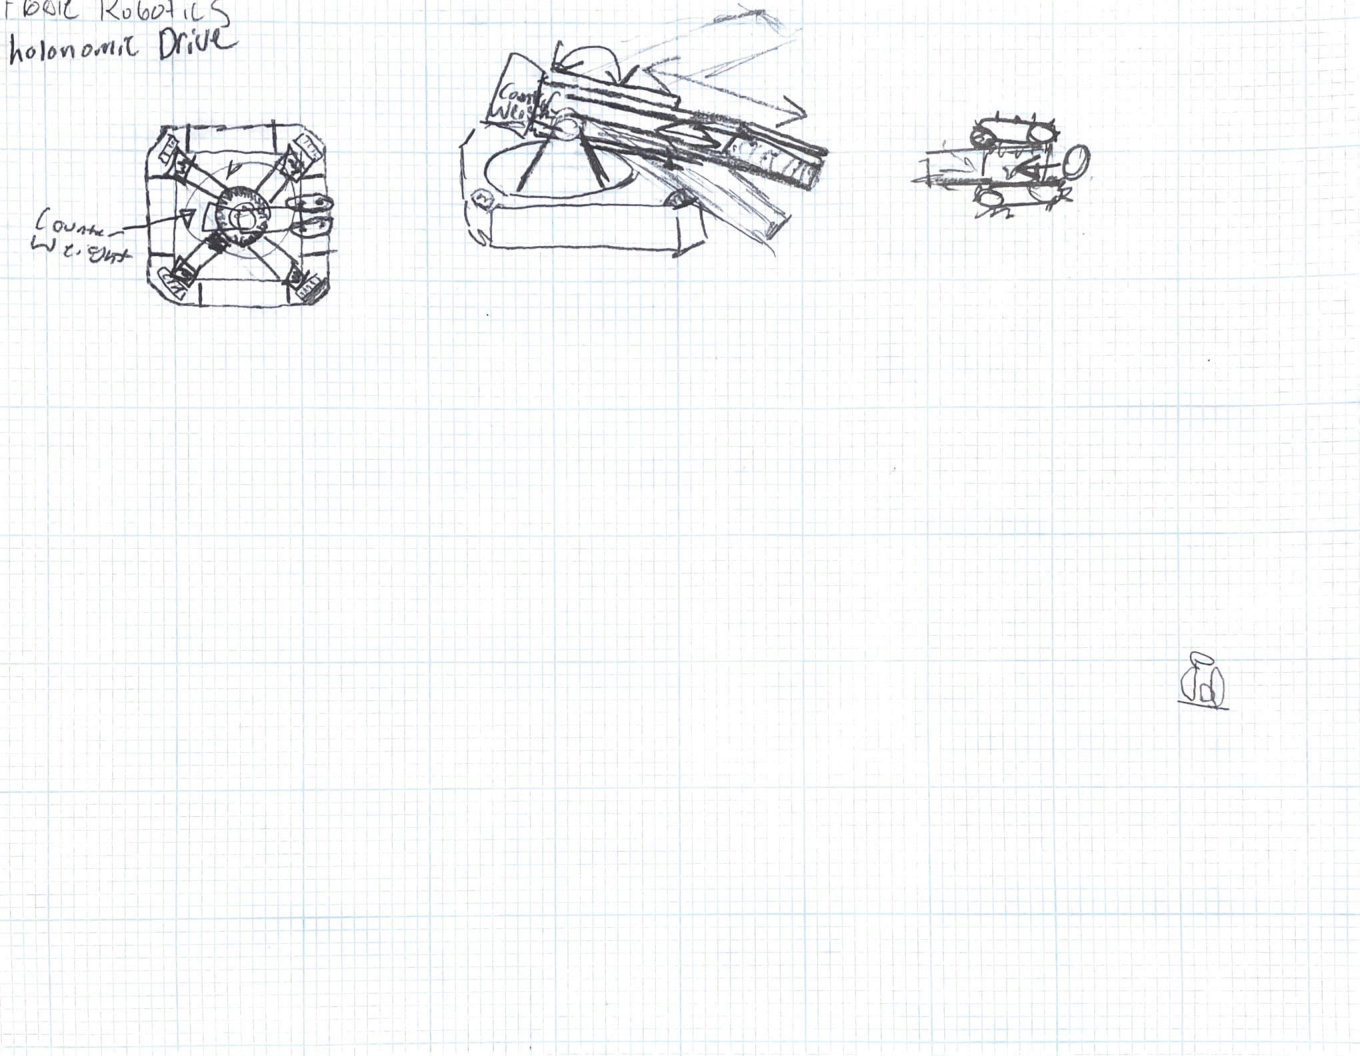 Robotics
holonomic Drive
Counter
Weight
Counter
Weight